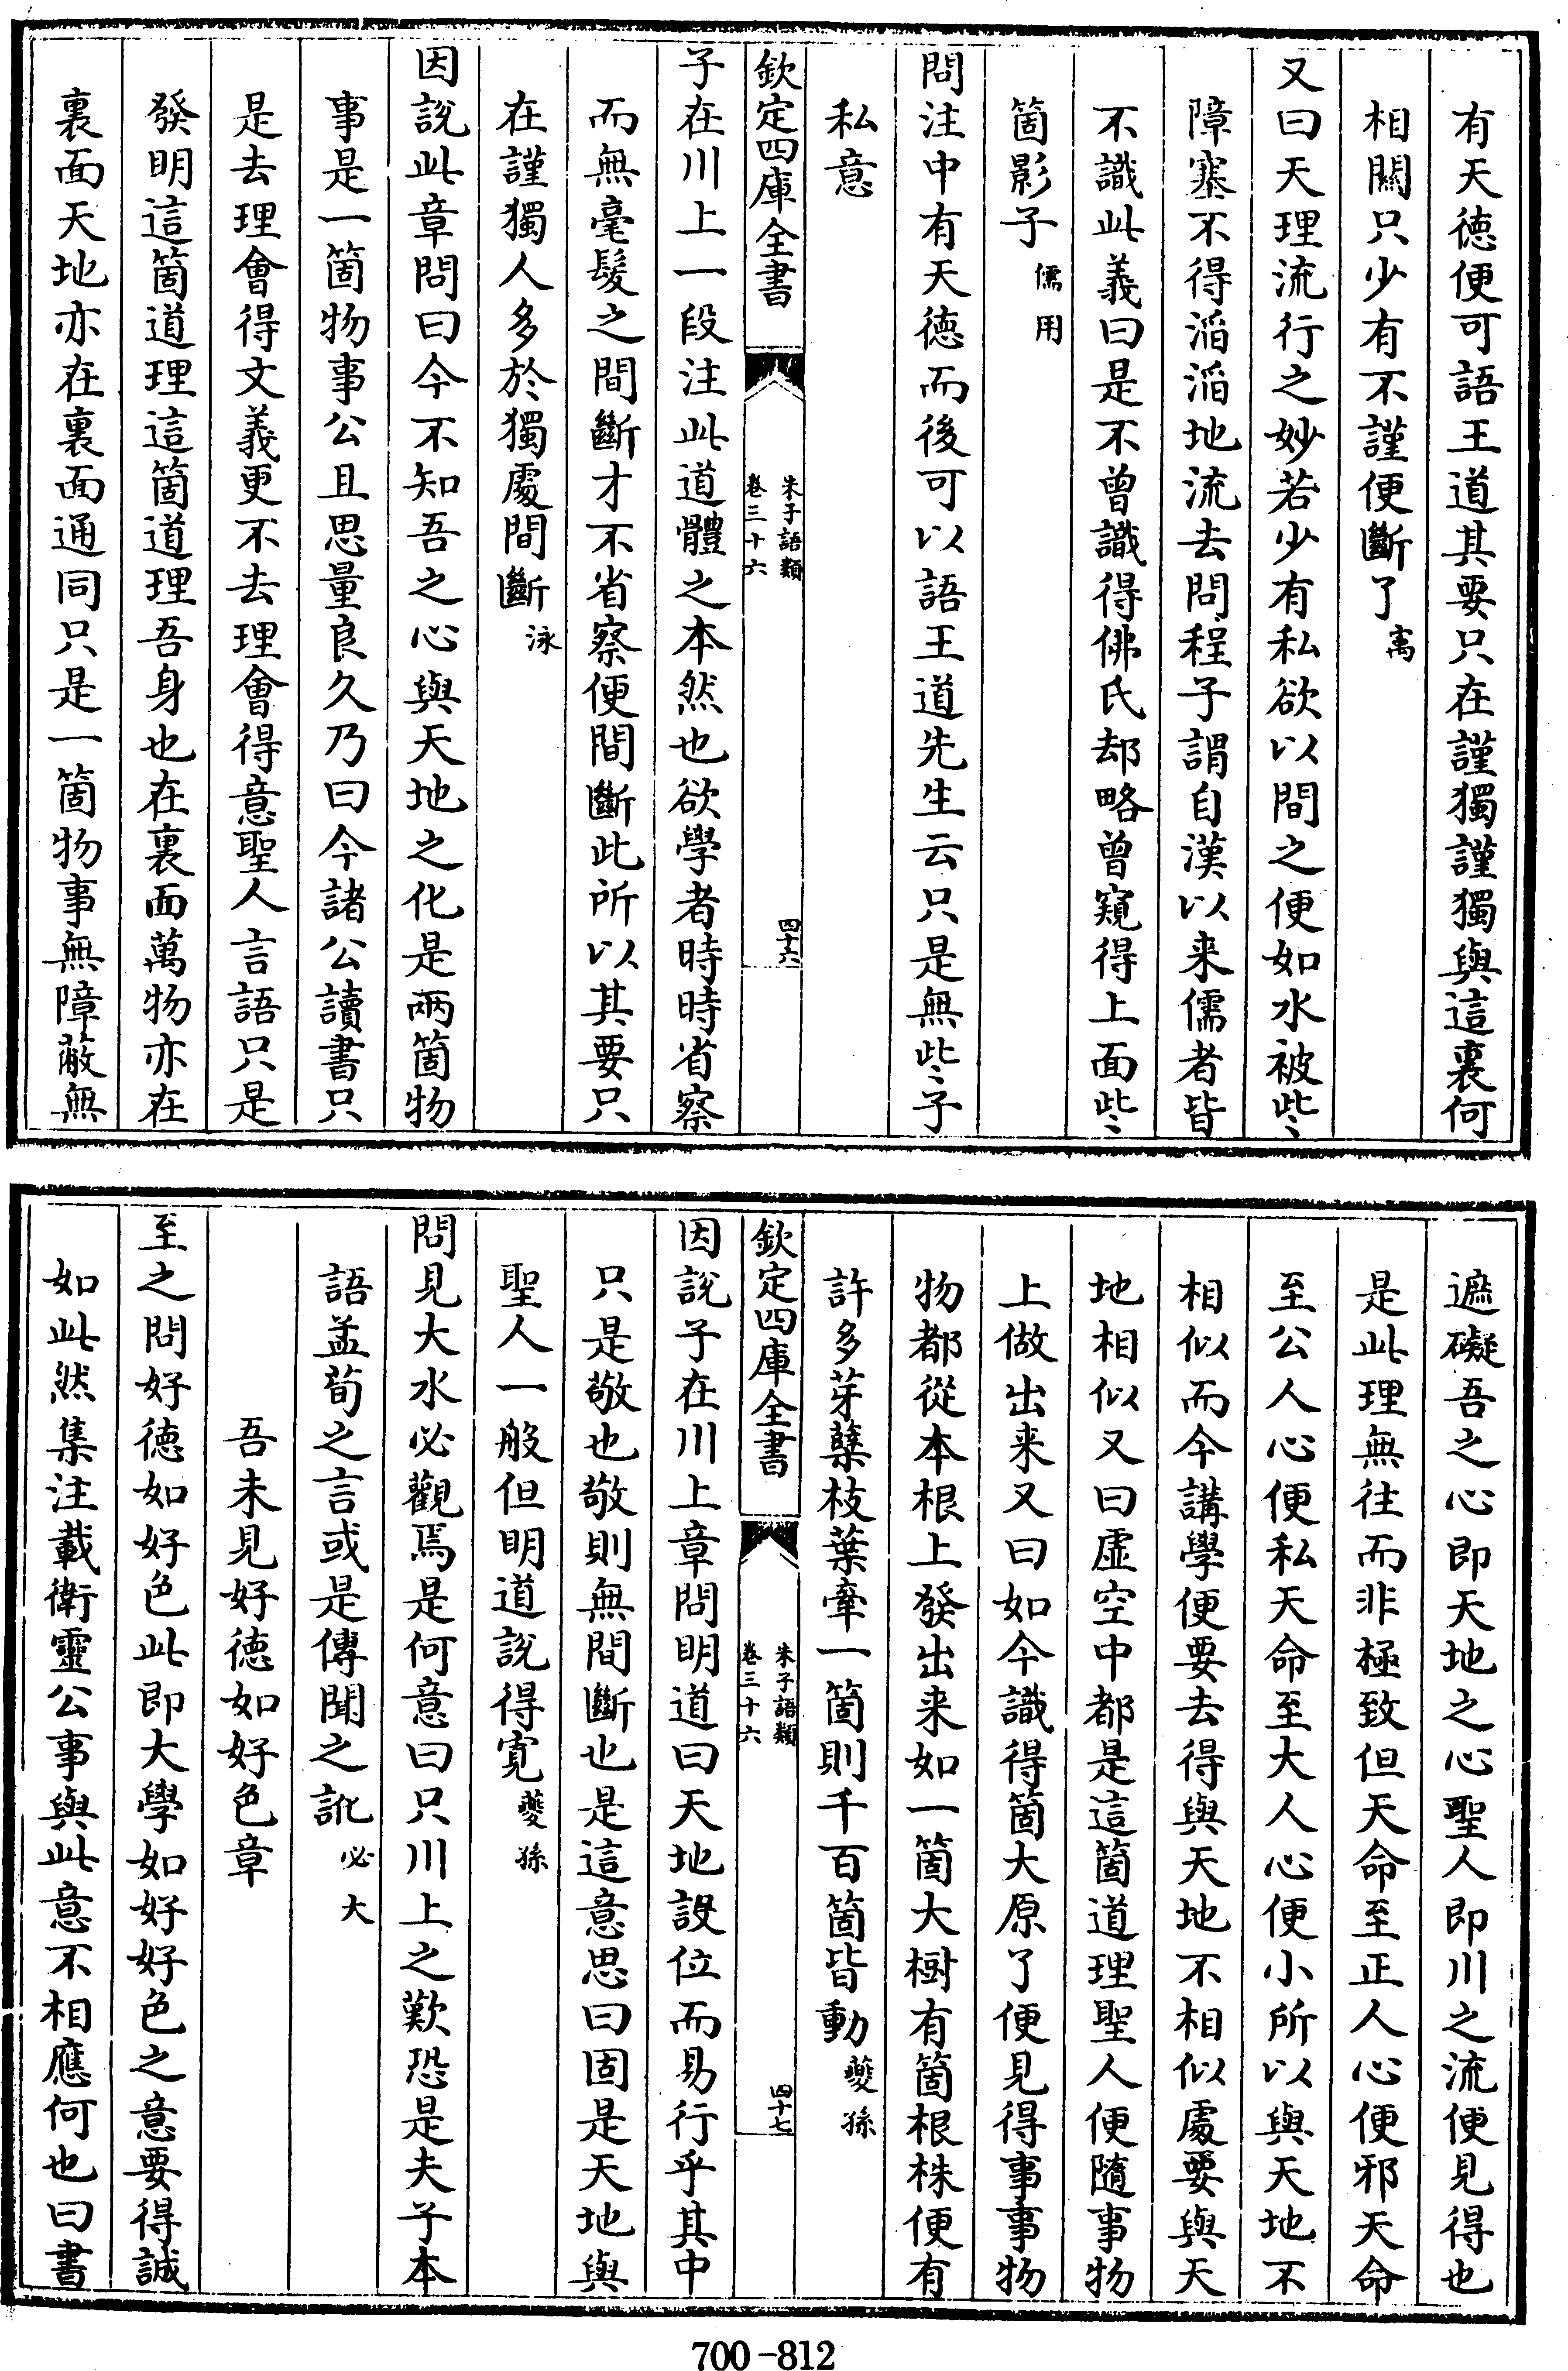 有天徳便可語王道其要只在謹獨謹獨與這裏何
相關只少有不謹便斷了㝢
又曰天理流行之妙若少有私欲以間之便如水被些
障塞不得滔滔地流去問程子謂自漢以来儒者皆
不識此義曰是不曾識得佛氏却略曾窺得上面些
箇影子儒用
問注中有天徳而後可以語王道先生云只是無些子
私意
欽定四庫全書
朱子語類
卷三十六
四十六
子在川上一段注此道體之本然也欲學者時時省察
而無毫髮之間斷才不省察便間斷此所以其要只
在謹獨人多於獨處間斷泳
因説此章問曰今不知吾之心與天地之化是兩箇物
事是一箇物事公且思量良久乃曰今諸公讀書只
是去理會得文義更不去理會得意聖人言語只是
發明這箇道理這箇道理吾身也在裏面萬物亦在
裏面天地亦在裏面通同只是一箇物事無障蔽無
遮礙吾之心即天地之心聖人即川之流便見得也
是此理無往而非極致但天命至正人心便邪天命
至公人心便私天命至大人心便小所以與天地不
相似而今講學便要去得與天地不相似處要與天
地相似又曰虚空中都是這箇道理聖人便隨事物
上做出来又曰如今識得箇大原了便見得事事物
物都從本根上發出来如一箇大樹有箇根株便有
許多芽蘖枝葉牽一箇則千百箇皆動夔孫
欽定四庫全書
朱子語類
卷三十六
四十七
因説子在川上章問明道曰天地設位而易行乎其中
只是敬也敬則無間斷也是這意思曰固是天地與
聖人一般但明道説得寛夔孫
問見大水必觀焉是何意曰只川上之歎恐是夫子本
語孟荀之言或是傳聞之訛必大
吾未見好徳如好色章
至之問好徳如好色此即大學如好好色之意要得誠
如此然集注載衛靈公事與此意不相應何也曰書
700-812